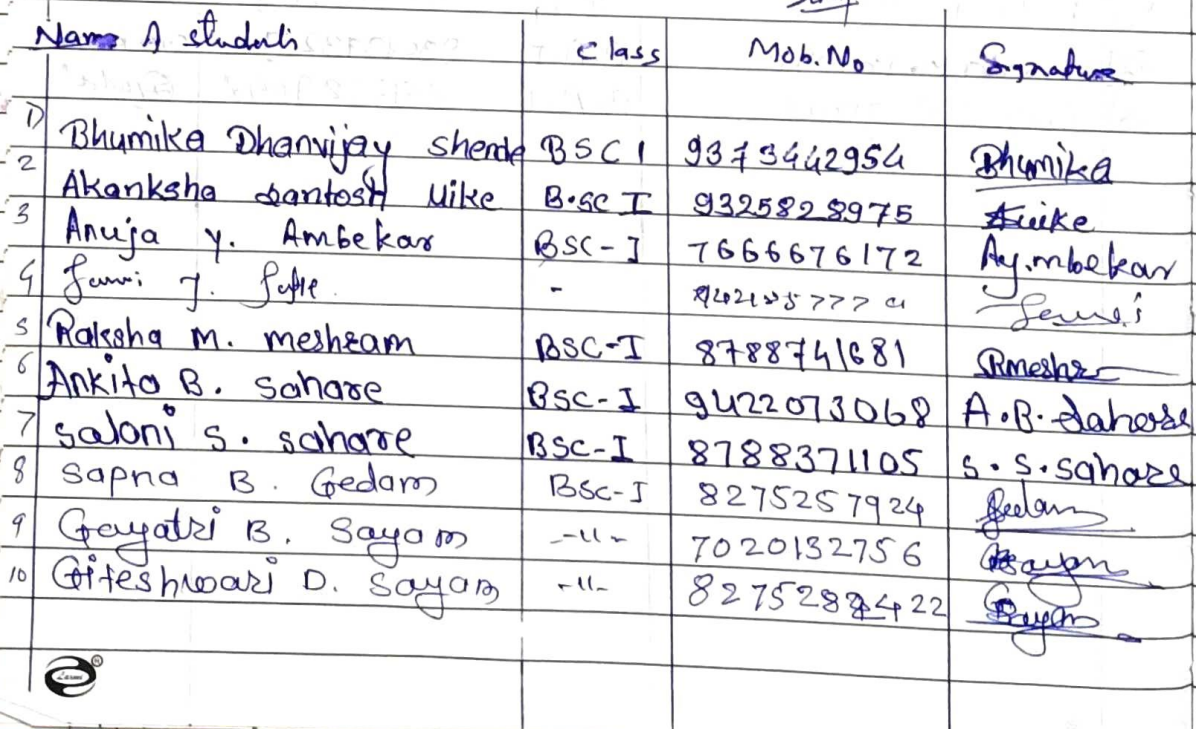 Name of students Class Mob. No Signature
1) Bhumika Dhanvijay shende BSC I 9373442954 Bhumika
2 Akanksha santosh Uike B.sc I 9325828975 Auike
3 Anuja Y. Ambekar BSC-I 7666676172 Ay.mbekar
4 J. -
5 Raksha M. meshram BSC-I 8788741681 Rmeshr
6 Ankita B. Sahare BSC-I 9422073068 A.B. Sahare
7 Saloni S. sahare BSC-I 8788371105 S.S.sahare
8 Sapna B. Gedam BSC-I 8275257924 Gedam
9 Gayatri B. Sayam -11- 7020132756 Sayam
10 Giteshwari D. Sayam -11- Sayam
Laxmi